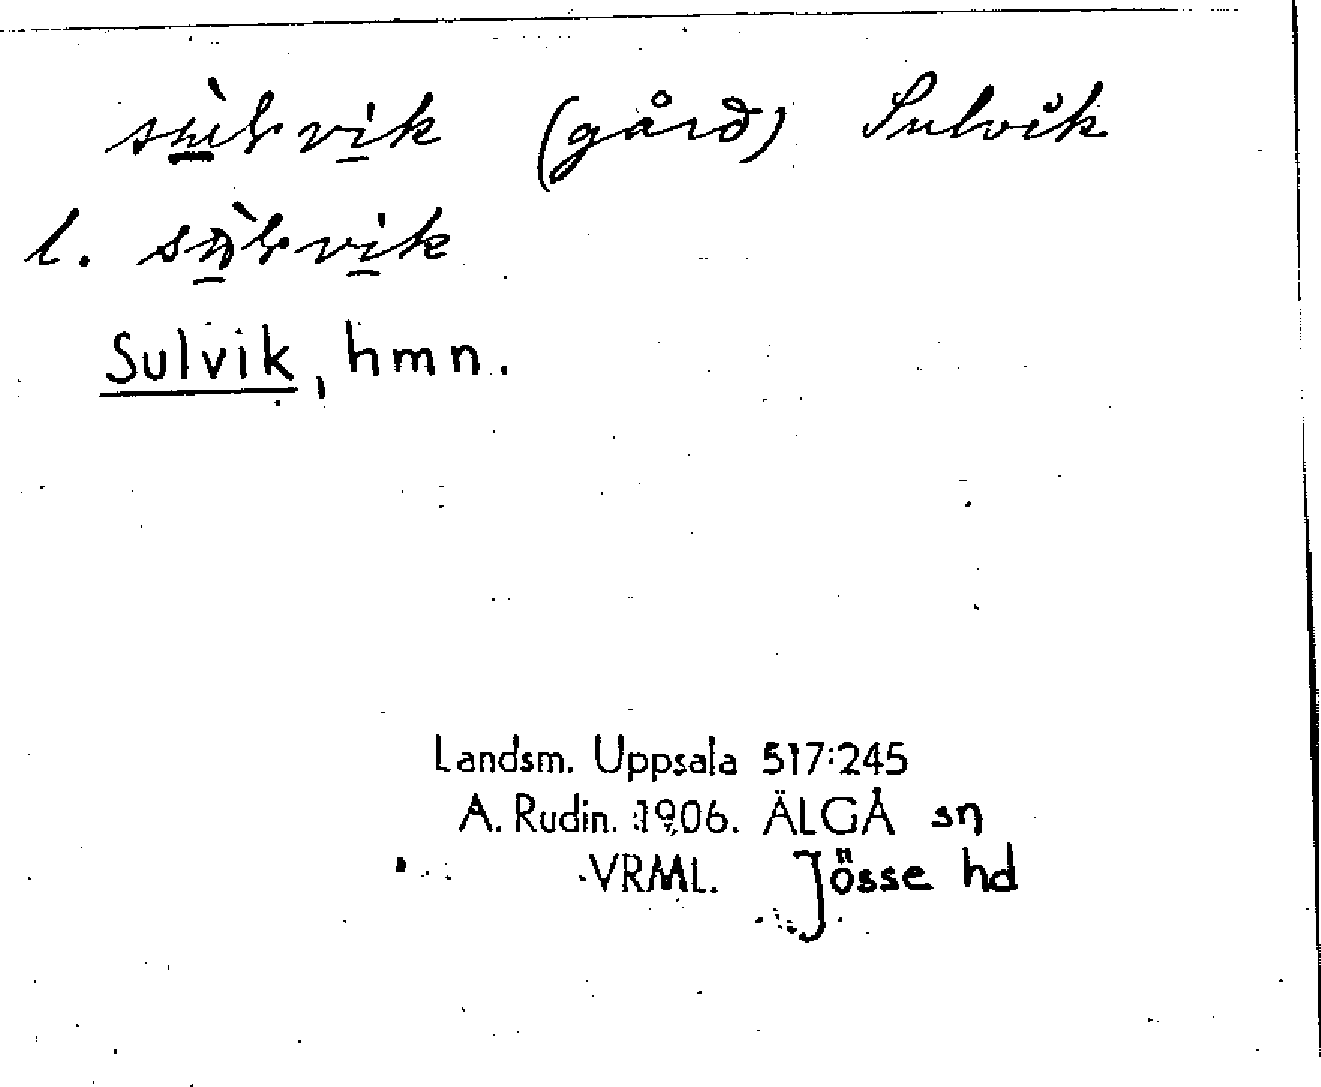 sùlvik (gård) Sulvik
l. sùlvik
Sulvik, hmn.
Landsm. Uppsala 517:245
A. Rudin. 1906. ÄLGÅ sn
VRML. Jösse hd